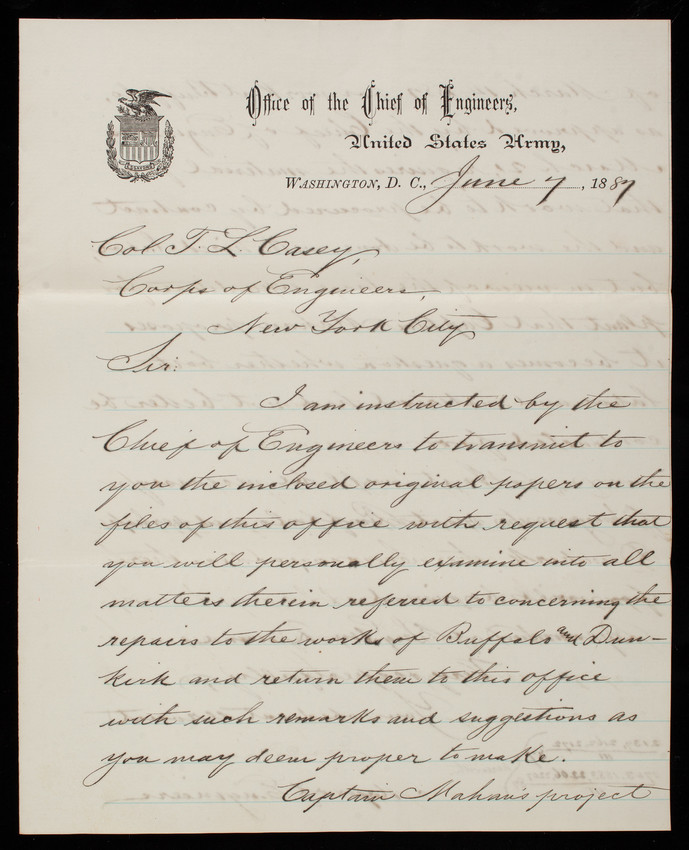 Office of the Chief of Engineers,
United States Army,
WASHINGTON, D. C., June 7, 1887
Col. T. L. Casey,
Corps of Engineers,
New York City
Sir:
I am instructed by the
Chief of Engineers to transmit to
you the inclosed original papers on the
files of this office with request that
you will personally examine into all
matters therein referred to concerning the
repairs to the works of Buffalo and Dun-
kirk and return them to this office
with such remarks and suggestions as
you may deem proper to make.
Captain Mahan's project